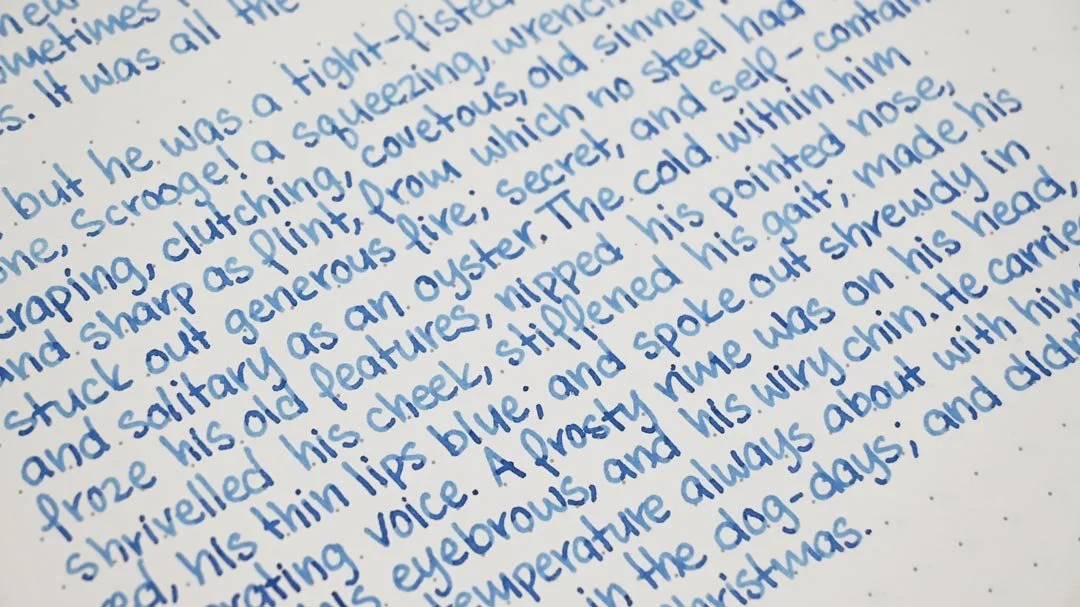 new
ometimes
s. It was all the
but he was a tight-fisted
one, scrooge! a squeezing, wrench
craping, clutching, covetous, old sinner
and sharp as flint, from which no steel had
stuck out generous fire; secret, and self-contain
and solitary as an oyster. The cold within him
froze his old features, nipped his pointed nose,
shrivelled his cheek, stiffened his gait; made his
ed, his thin lips blue; and spoke out shrewdy in
rating voice. A frosty rime was on his head,
is eyebrows, and his wiry chin. He carrie
temperature always about with him
in the dog-days; and didn
hristmas.